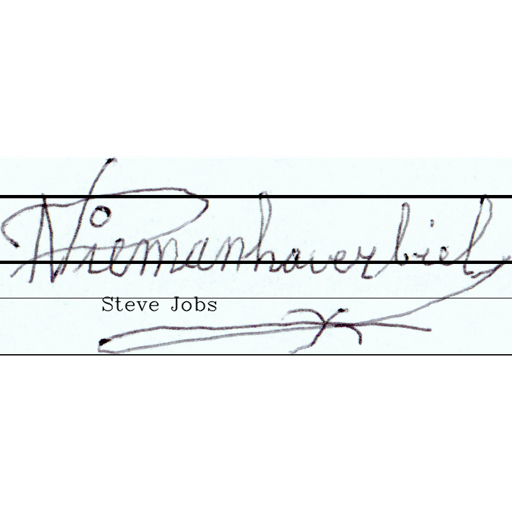 Niemanhaverbiel
Steve Jobs